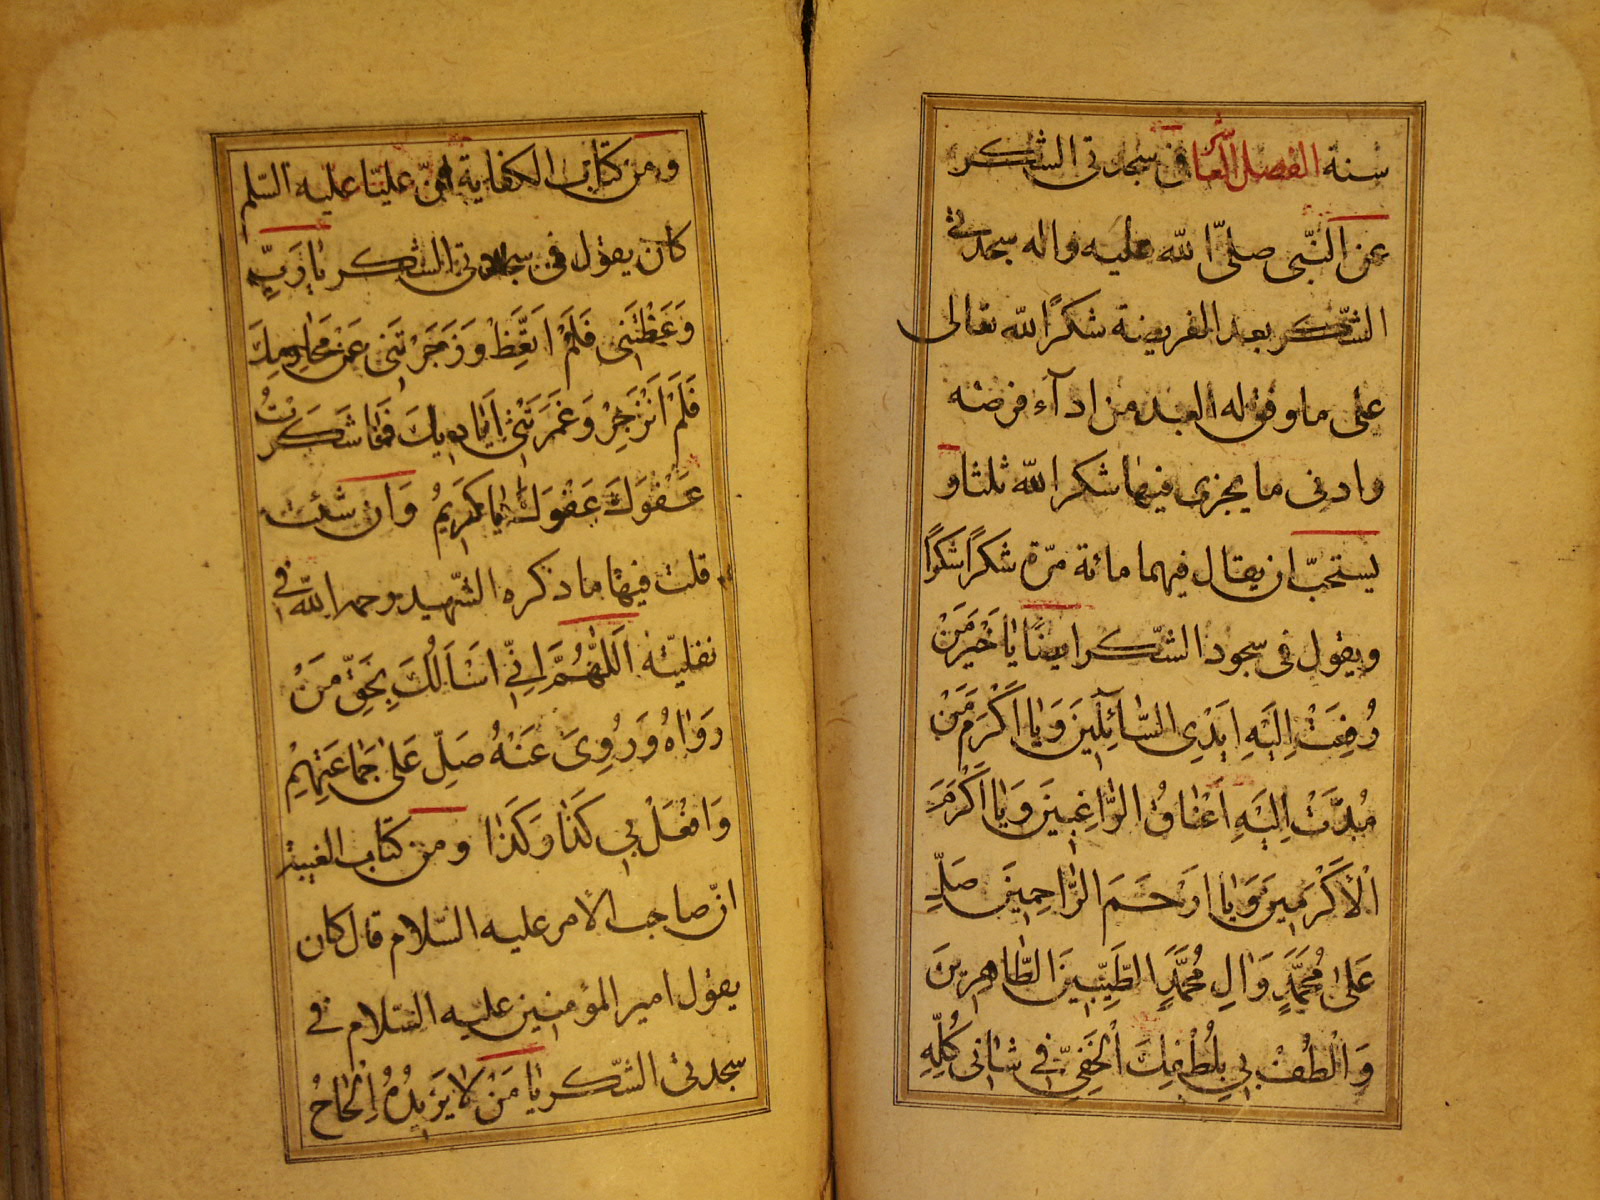 سنة الفصل العاشر فى سجدتى الشكر
عن النّبى صلى الله عليه واله سجدتى
الشّكر بعد الفريضة شكرًا لله تعالى
على ما وفق له العبد من ادآء فرضه
وادنى ما يجزى فيها شكرا لله ثلثا و
يستحبّ ان يقال فيهما مائة مرّة شكرًا شكرًا
ويقول فى سجود الشّكر ايضًا يا خَيْرَ مَنْ
رُفِعَتْ اِلَيْهِ اَيْدِى السّٰآئِلينَ وَيٰا اَكْرَمَ مَنْ
مُدَّتْ اِلَيْهِ اَعْنٰاقُ الرّٰاغِبينَ وَيٰا اَكْرَمَ
الْاَكْرَمينَ وَيٰا اَرْحَمَ الرّٰاحِمينَ صَلِّ
عَلىٰ مُحَمَّدٍ وَالِ مُحَمَّدٍ الطَّيِّبينَ الطّٰاهِرينَ
وَالْطُفْ بي بِلُطْفِكَ الْخَفِيِّ في شَانى كُلِّهِ
ومن كتاب الكفاية انّ عليّا عليه السّلم
كان يقول فى سجدتى الشكر يٰا رَبِّ
وَعَظْتَنى فَلَمْ اَتَّعِظْ وَزَجَرْتَنى عَنْ مَحٰارِمِكَ
فَلَمْ اَنْزَجِرْ وَغَمَرَتْنى اَيٰاديكَ فَمٰا شَكَرْتُ
عَفْوَكَ عَفْوَكَ يٰا كَريمُ وَان شئت
قلت فيها ما ذكره الشّهيد رحمه الله فى
نفليّته اَللّٰهُمَّ اِنّي اَسْاَلُكَ بِحَقِّ مَنْ
رَوٰاهُ وَرُوِىَ عَنْهُ صَلِّ عَلىٰ جَمٰاعَتِهِمْ
وَافْعَلْ بي كَذٰا وَكَذٰا ومن كتاب الغيبة
انّ صاحب الامر عليه السّلام قال كان
يقول امير المؤمنين عليه السّلام فى
سجدتى الشّكر يٰا مَنْ لٰا يَزيدُهُ اِلْحٰاحُ